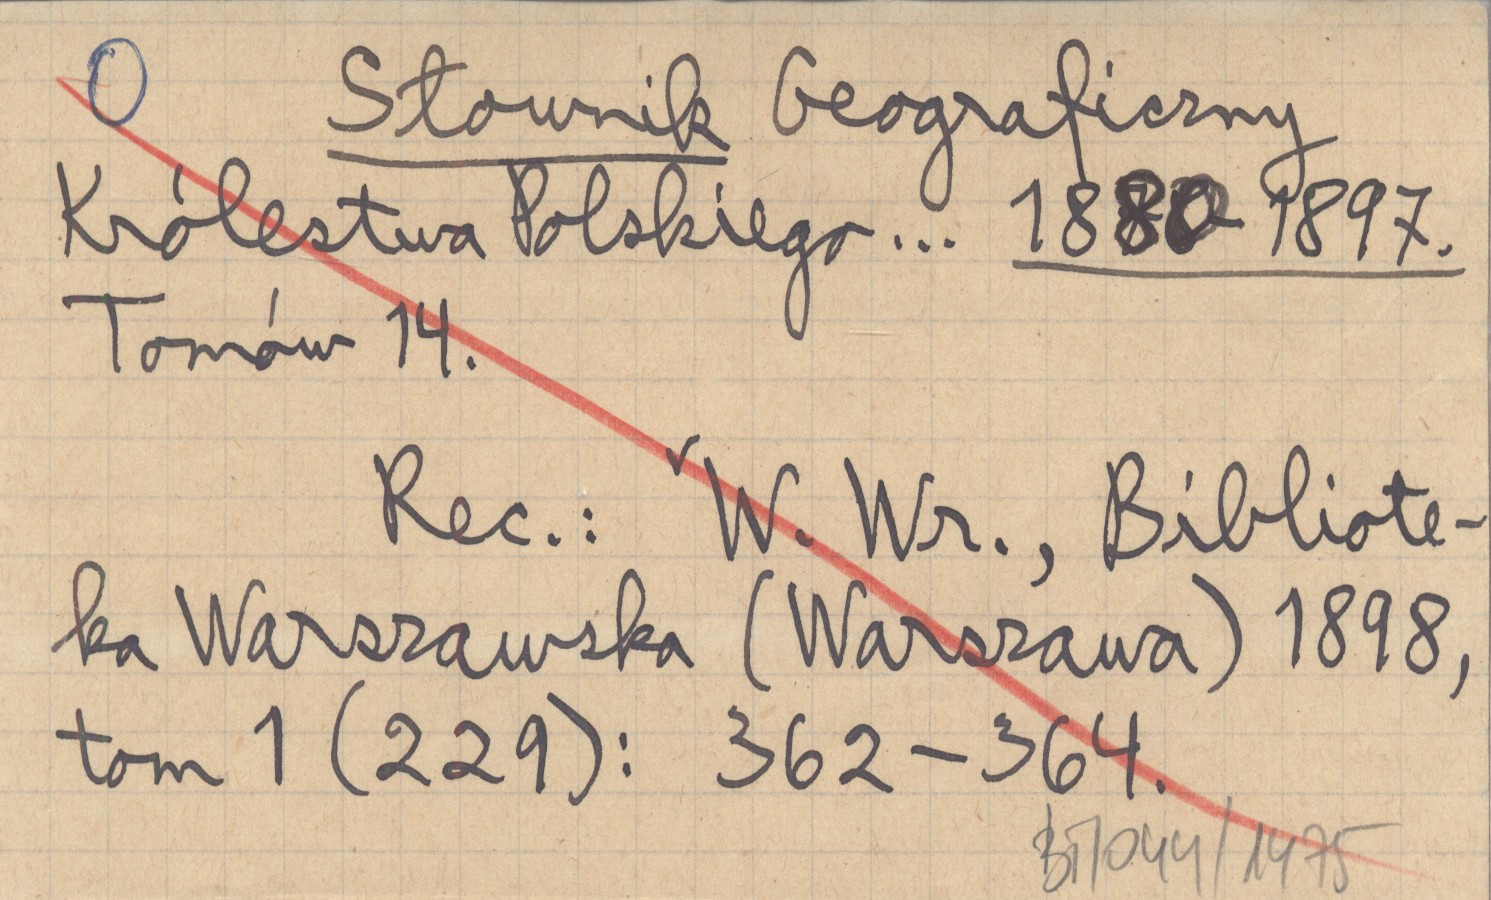 O Słownik Geograficzny
Królestwa Polskiego... 1880-1897.
Tomów 14.
Rec.: W. Wr., Bibliote-
ka Warszawska (Warszawa) 1898,
tom 1 (229): 362-364.
/044/1475